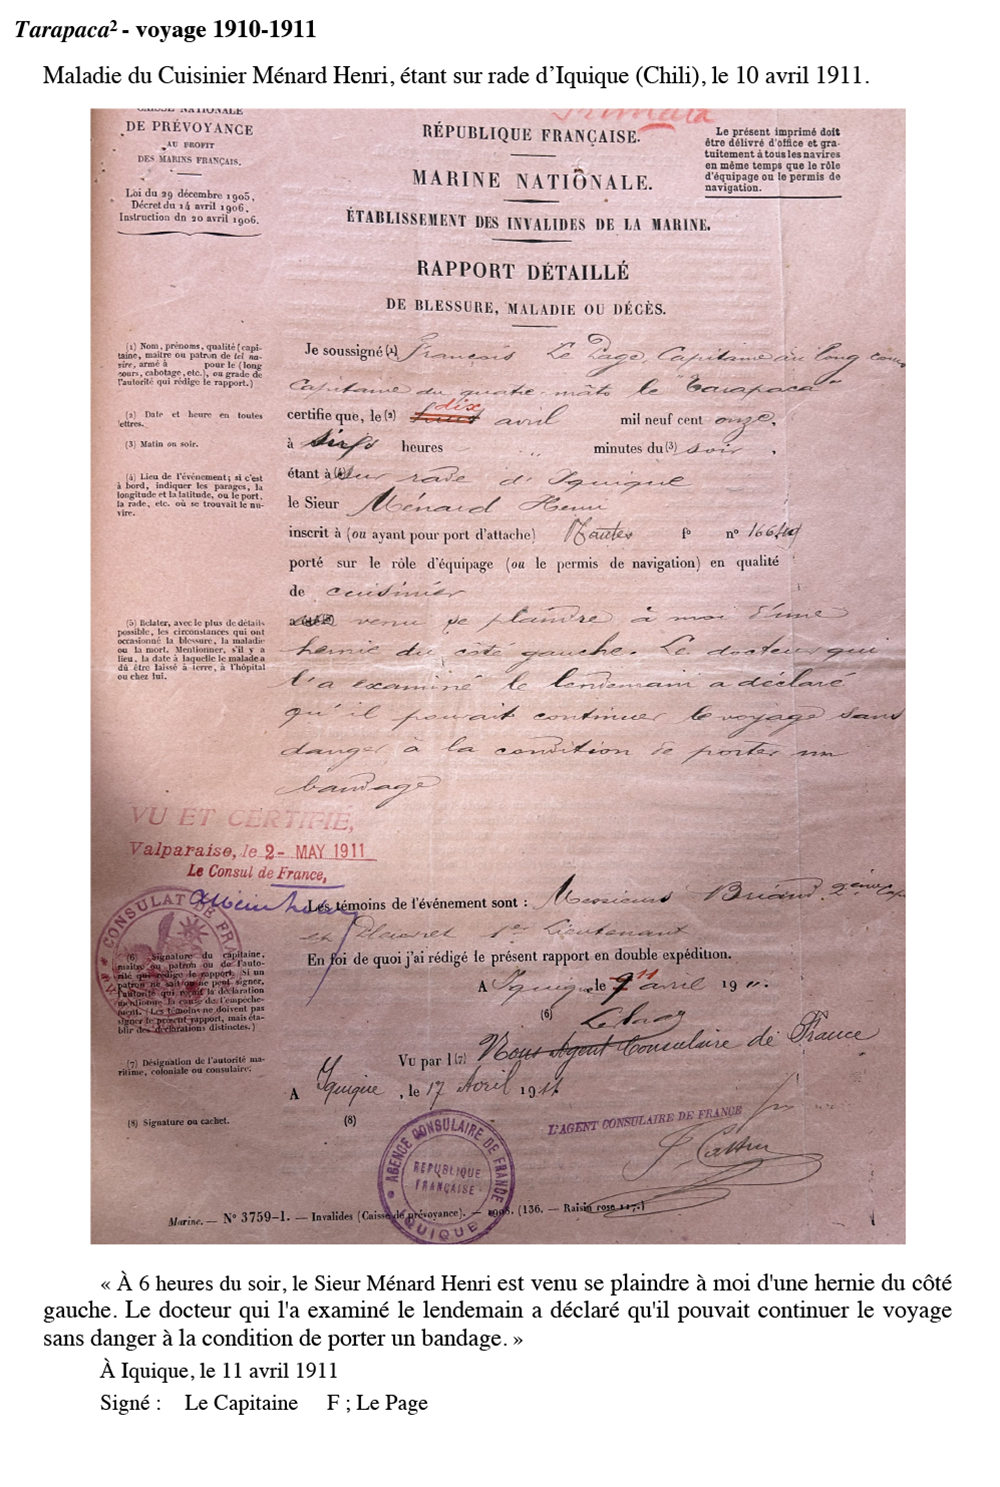 Tarapaca² - voyage 1910-1911
Maladie du Cuisinier Ménard Henri, étant sur rade d'Iquique (Chili), le 10 avril 1911.
CAISSE NATIONALE
DE PRÉVOYANCE
AU PROFIT
DES MARINS FRANÇAIS.
Loi du 29 décembre 1905,
Décret du 14 avril 1906,
Instruction du 20 avril 1906.
RÉPUBLIQUE FRANÇAISE.
MARINE NATIONALE.
ÉTABLISSEMENT DES INVALIDES DE LA MARINE.
RAPPORT DÉTAILLÉ
DE BLESSURE, MALADIE OU DÉCÈS.
Le présent imprimé doit
être délivré d'office et gra-
tuitement à tous les navires
en même temps que le rôle
d'équipage ou le permis de
navigation.
(1) Nom, prénoms, qualité (capi-
taine, maître ou patron de tel na-
vire, armé à pour le (long
cours, cabotage, etc.), ou grade de
l'autorité qui rédige le rapport.)
(2) Date et heure en toutes
lettres.
(3) Matin ou soir.
(4) Lieu de l'événement; si c'est
à bord, indiquer les parages, la
longitude et la latitude, ou le port,
la rade, etc. où se trouvait le na-
vire.
Je soussigné (1) François Le Page, Capitaine au long cours
Capitaine du quatre-mâts le "Tarapaca"
certifie que, le (2) dix avril mil neuf cent onze,
à six heures minutes du (3) soir,
étant à (4) sur rade d'Iquique
le Sieur Ménard Henri
inscrit à (ou ayant pour port d'attache) Nantes f° n°
porté sur le rôle d'équipage (ou le permis de navigation) en qualité
de cuisinier
(5) Relater, avec le plus de détails
possible, les circonstances qui ont
occasionné la blessure, la maladie
ou la mort. Mentionner, s'il y a
lieu, la date à laquelle le malade a
dû être laissé à terre, à l'hôpital
ou chez lui.
venu se plaindre à moi d'une
hernie du côté gauche. Le docteur qui
l'a examiné le lendemain a déclaré
qu'il pouvait continuer le voyage sans
danger à la condition de porter un
bandage
VU ET CERTIFIE,
Valparaiso, le 2- MAY 1911
Le Consul de France,
CONSULAT DE FRANCE
Les témoins de l'événement sont : Messieurs Briand, 2ème Cap
et 1er Lieutenant
En foi de quoi j'ai rédigé le présent rapport en double expédition.
A Iquique le 11 avril 1911.
(6) Signature du capitaine,
maître ou patron ou de l'auto-
rité qui rédige le rapport. Si un
patron ne sait ou ne peut signer,
l'autorité qui reçoit la déclaration
mentionne la cause de l'empêche-
ment. (Les témoins ne doivent pas
signer le présent rapport, mais éta-
blir des déclarations distinctes.)
(6) Le Page
(7) Désignation de l'autorité ma-
ritime, coloniale ou consulaire.
Vu par l (7) Nous Agent Consulaire de France
A Iquique, le 17 Avril 1911.
(8) Signature ou cachet.
(8)
L'AGENT CONSULAIRE DE FRANCE
AGENCE CONSULAIRE DE FRANCE
RÉPUBLIQUE
FRANÇAISE
IQUIQUE
Marine. — N° 3759-1. — Invalides (Caisse de prévoyance). — 1908. (136. — Raisin rose 117.)
« À 6 heures du soir, le Sieur Ménard Henri est venu se plaindre à moi d'une hernie du côté
gauche. Le docteur qui l'a examiné le lendemain a déclaré qu'il pouvait continuer le voyage
sans danger à la condition de porter un bandage. »
À Iquique, le 11 avril 1911
Signé : Le Capitaine F ; Le Page